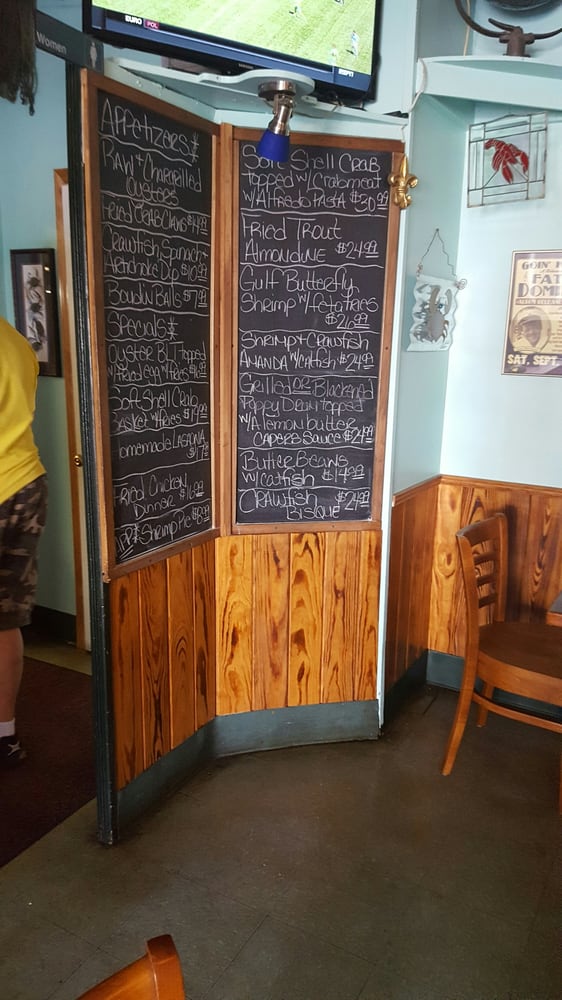 EURO POL
ESPN
Women
Appetizers
RAW & Chargrilled
Oysters
Fried CRAB CLAWS $14.99
Crawfish, Spinach &
Artichoke Dip $10.99
Boudin Balls $7.99
Specials
Oyster BLT topped
w/Fried egg w/Fries
Soft Shell Crab
Basket w/Fries $19.99
Homemade LASAGNA
Fried Chicken
Dinner $16.99
APP Shrimp Pie
Soft Shell Crab
topped w/ Crabmeat
w/Alfredo Pasta $30.99
Fried Trout
Almondine $24.99
Gulf Butterfly
Shrimp w/ Feta Fries
$26.99
Shrimp & Crawfish
AMANDA w/Catfish $24.99
Grilled OR Blackened
Poppy Drum topped
w/A lemon butter
CAPERS Sauce $24.99
Butter Beans
w/ Catfish $14.99
CRAWfish $24.99
Bisque
FAT
SAT. SEPT.